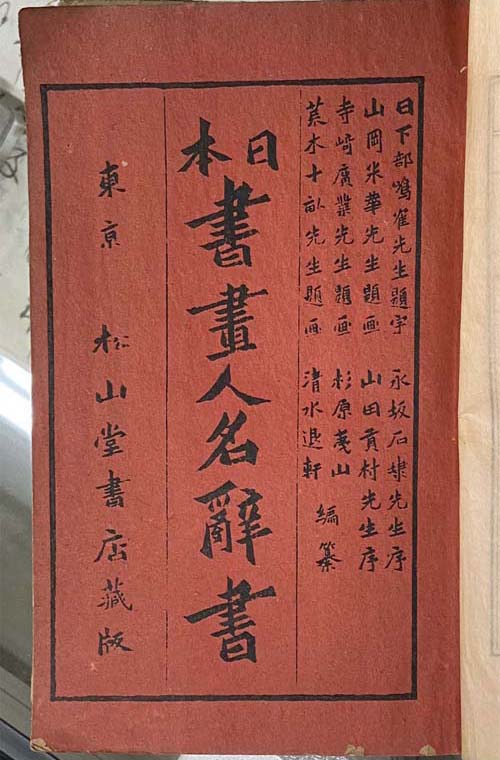 日下部鳴隺先生題字 永坂石埭先生序
山岡米華先生題画 山田貢村先生序
寺崎廣業先生題画 杉原夷山
荒木十畝先生題画 清水退軒
編纂
日本
書畫人名辭書
東京 松山堂書店藏版